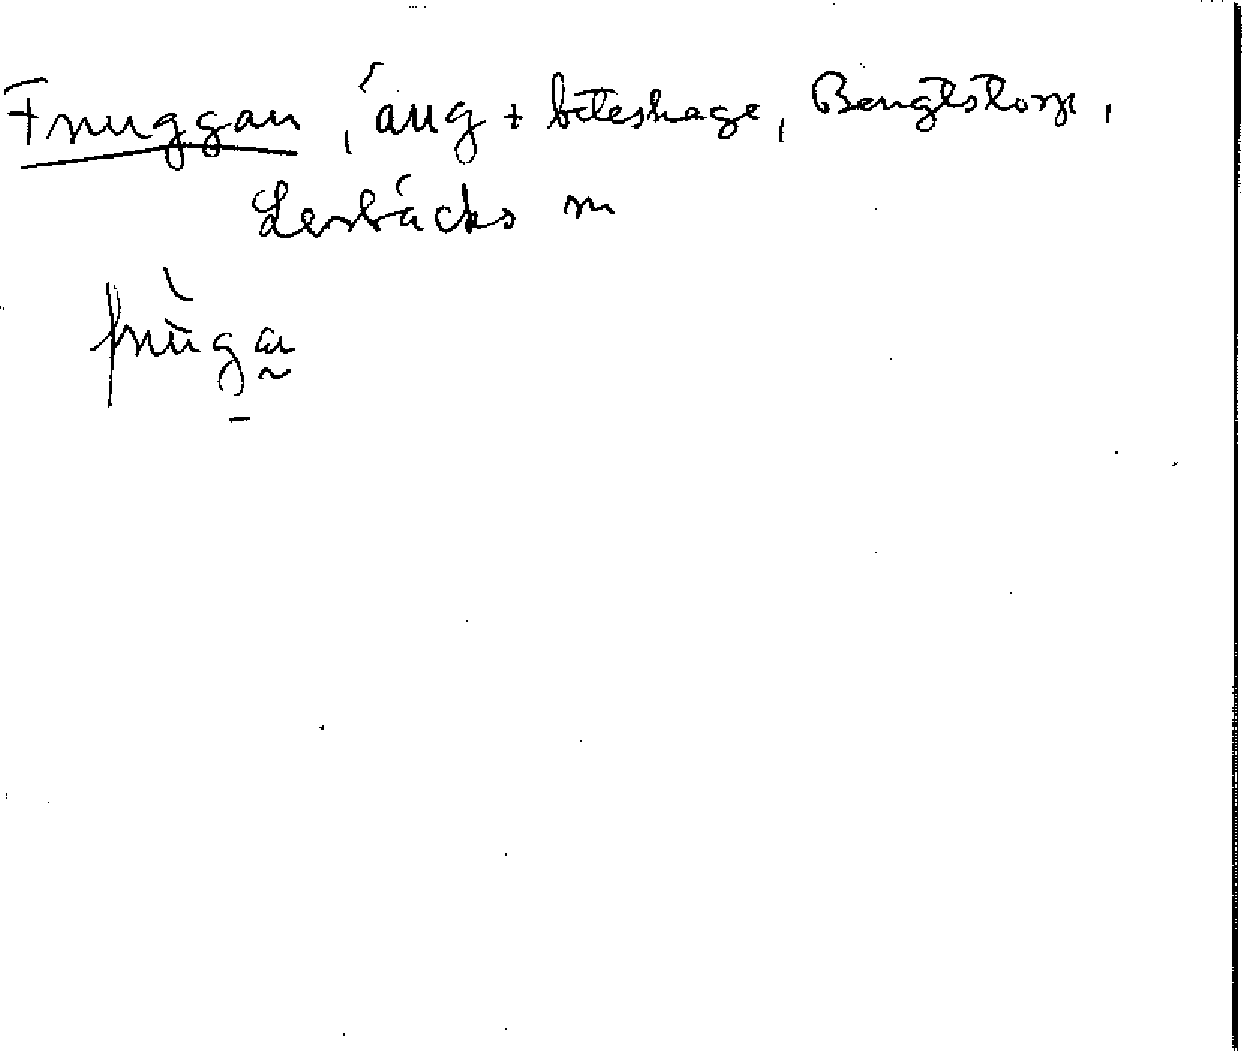 Fnuggan, äng + beteshage, Bengtstorp,
Lerbäcks sn
fnùga